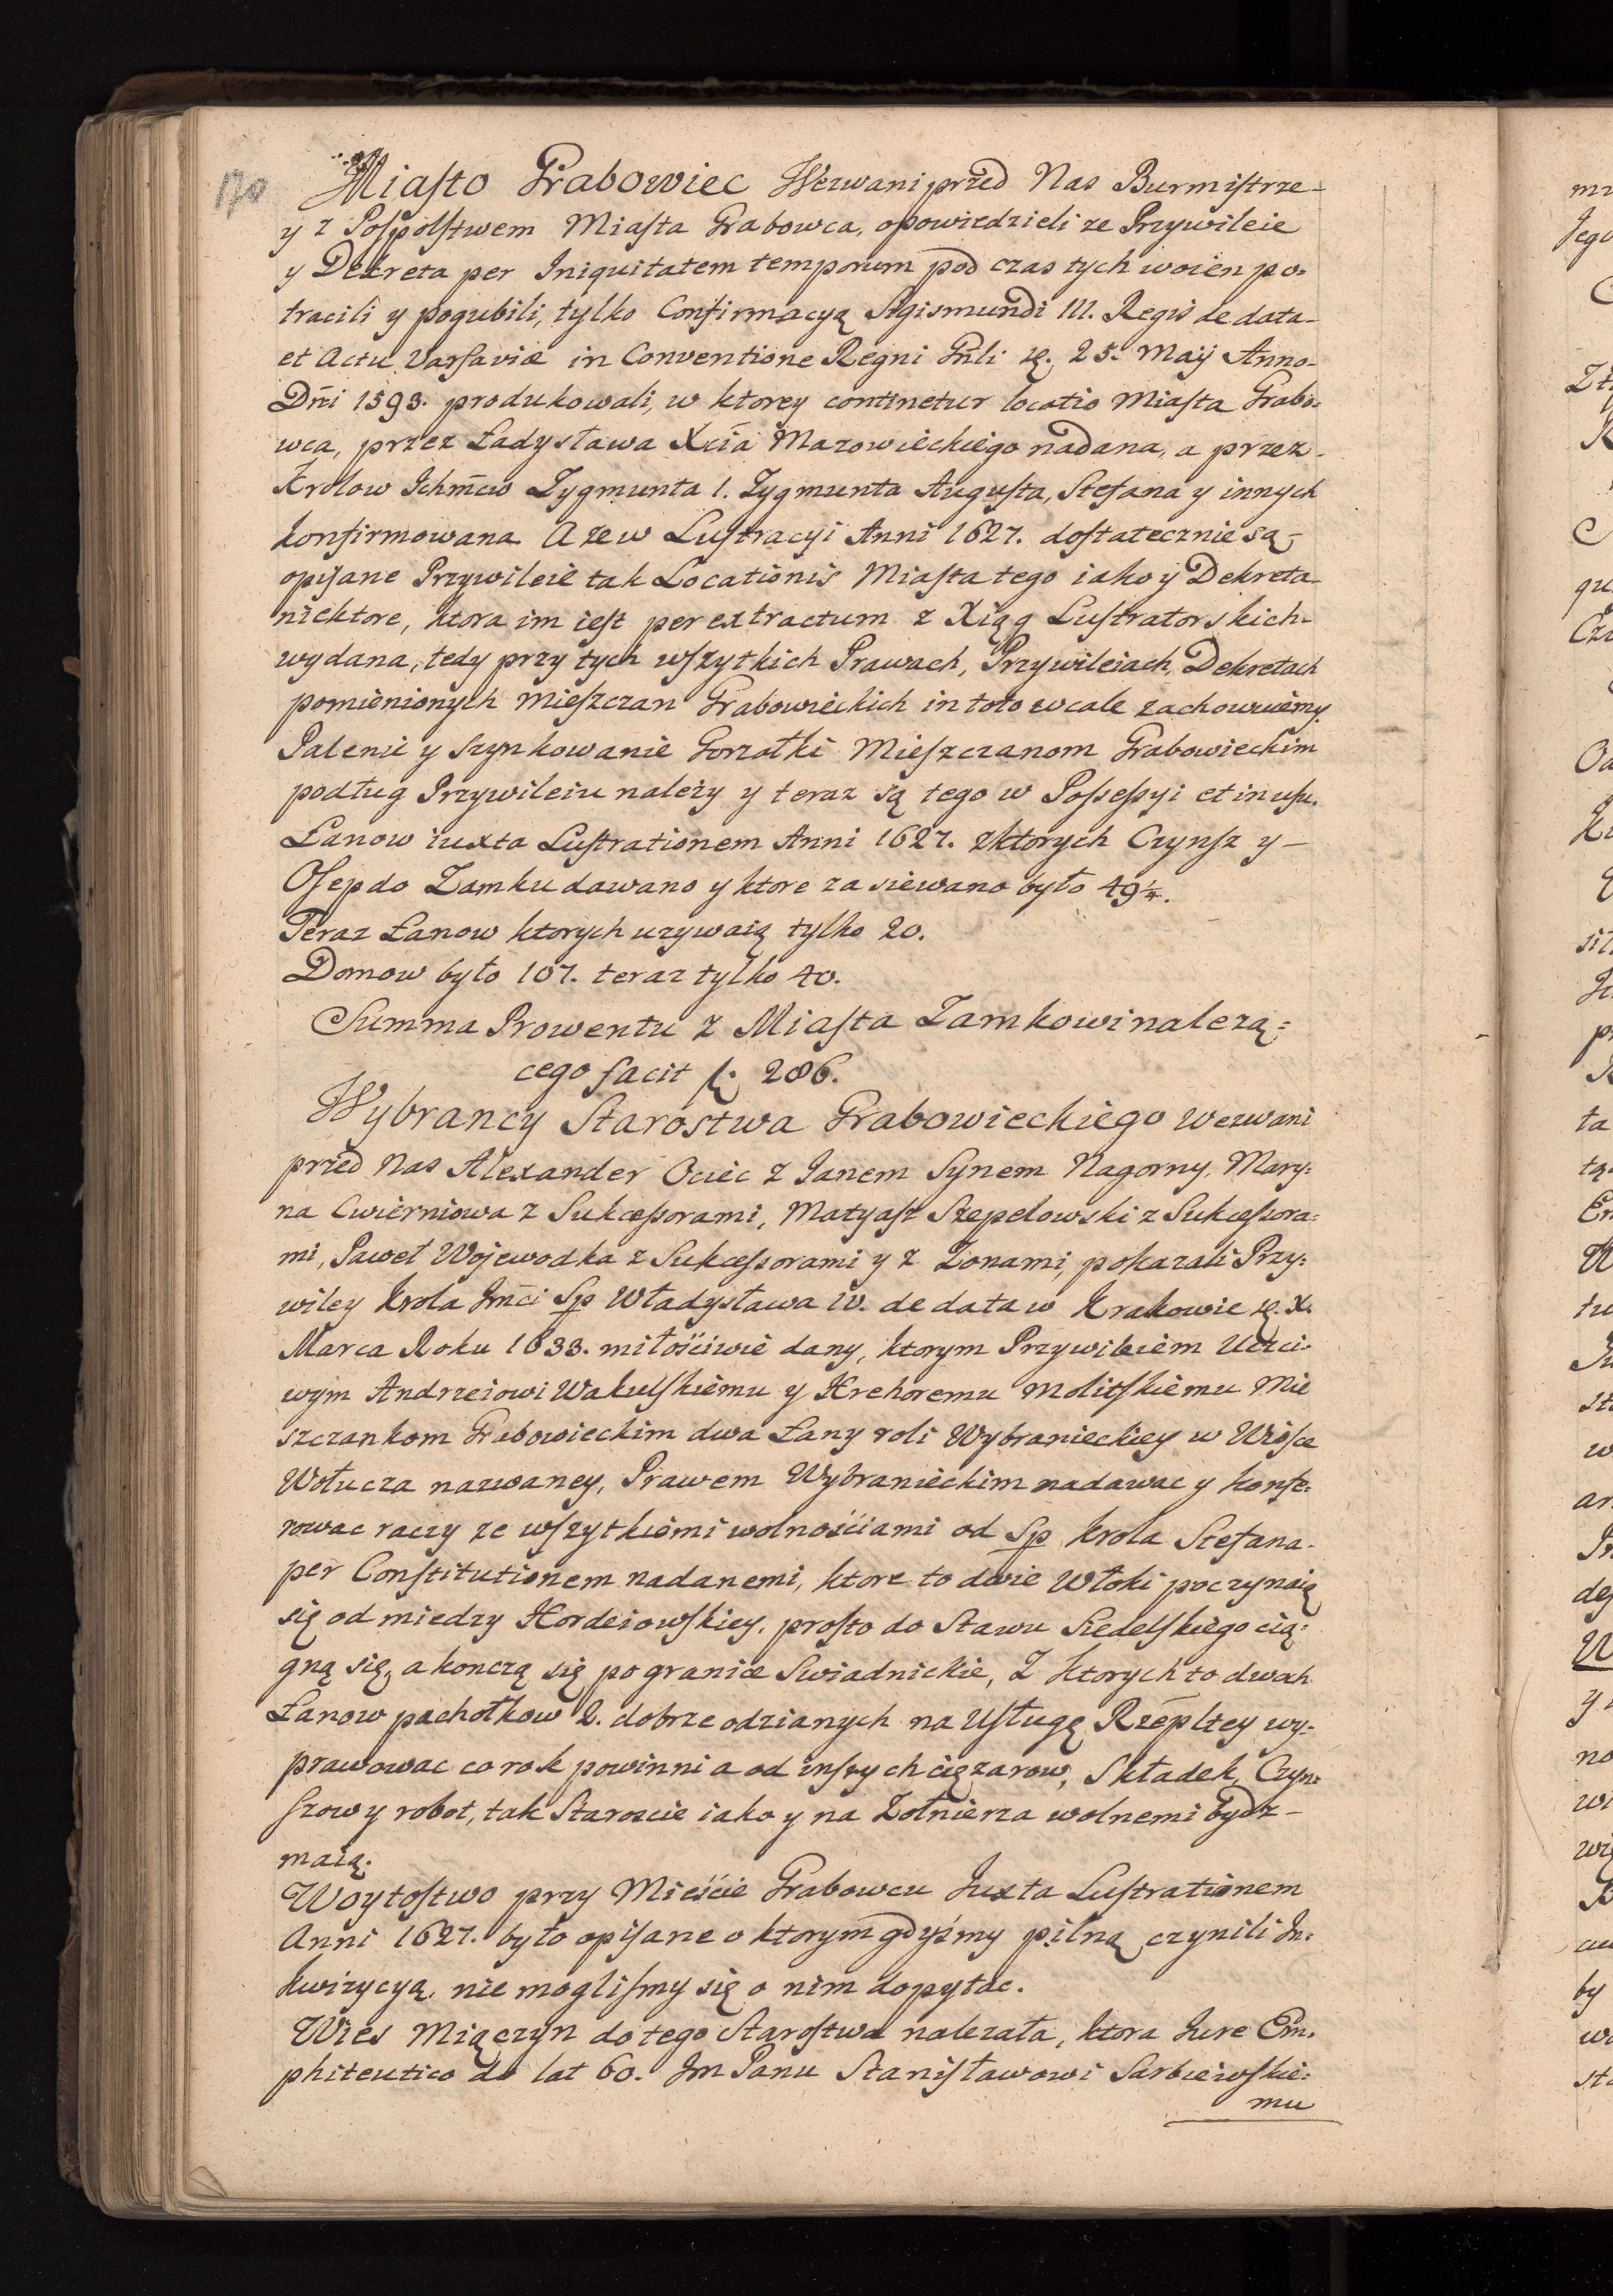 170
Miasto Grabowiec Wezwani przed Nas Burmistrze
y z Pospolstwem Miasta Grabowca, opowiedzieli ze Przywileie
y Dekreta per Iniquitatem temporum pod czas tych woien po=
tracili y pogubili, tylko Confirmacyą Sigismundi III. Regis de data
et Actu Varsaviæ in Conventione Regni Gñli 25. Maÿ Anno
Dñi 1593. produkowali, w ktorey continetur locatio Miasta Grabo=
wca, przez Ładysława Xcia Mazowieckiego nadana, a przez
Krolow Ichm̃cw Zygmunta 1. Zygmunta Augusta, Stefana y innych
konfirmowana. A ze w Lustracyi Anni 1627. dostatecznie są
opisane Przywileie tak Locationis Miasta tego iako y Dekreta
niektore, ktora im iest per extractum z Xiąg Lustratorskich
wydana, tedy przy tych wszytkich Prawach, Przywileiach, Dekretach
pomienionych Mieszczan Grabowieckich in toto wcale zachowuiemy.
Palenie y szynkowanie Gorzałki Mieszczanom Grabowieckim
podług Przywileiu należy y teraz są tego w Possessyi et in usu.
Łanow iuxta Lustrationem Anni 1627. z ktorych Czynsz y
Osep do Zamku dawano y ktore zasiewano było 49¼.
Teraz Łanow ktorych uzywaią tylko 20.
Domow było 107. teraz tylko 40.
Summa Prowentu z Miasta Zamkowi nalezą=
cego facit f. 286.
Wybrancy Starostwa Grabowieckiego wezwani
przed Nas Alexander Ociec z Ianem Synem Nagorny, Mary=
na Cwierniowa z Sukcessorami, Matyasz Szepelowski z Sukcessora=
mi, Paweł Wojewodka z Sukcessorami y z Zonami, pokazali Przy=
wiley Krola Jm̃ci Sp Władysława IV. de data w Krakowie X.
Marca Roku 1633. miłościwie dany, ktorym Przywileiem Uczci=
wym Andrzeiowi Wakulskiemu y Hrehoremu Molitskiemu Mie
szczankom Grabowieckim dwa Łany roli Wybranieckiey w Wiosce
Wołucza nazwaney, Prawem Wybranieckim nadawac y konfe=
rowac raczy ze wszytkiemi wolnościami od Sp Krola Stefana
per Constitutionem nadanemi, ktore to dwie Włoki poczynaią
się od miedzy Hordeiowskiey, prosto do Stawu Siedelskiego cią=
gną się, a konczą się po granice Swiadnickie, Z ktorych to dwoh
Łanow pachołkow 2. dobrze odzianych na Usługę Rzepltey wy=
prawowac co rok powinni a od inszych cięzarow, Składek, Czyn=
szow y robot, tak Staroscie iako y na Zołnierza wolnemi bydz
maią.
Woytostwo przy Mieście Grabowcu Iuxta Lustrationem
Anni 1627. było opisane o ktorym gdyśmy pilną czynili In=
kwizycyą, nie moglismy się o nim dopytac.
Wies Miączyn do tego Starostwa nalezała, ktora Iure Em=
phiteutico do lat 60. Jm Panu Stanisławowi Sarbiewskie=
mu